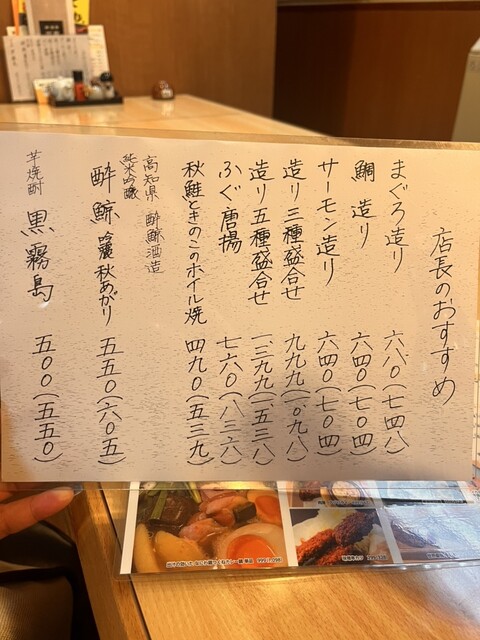 店長のおすすめ
まぐろ造り 六八〇(七四八)
鯛造り 六四〇(七〇四)
サーモン造り 六四〇(七〇四)
造り三種盛合せ 九九九(一〇九八)
造り五種盛合せ 一、三九九(一五三八)
ふぐ唐揚 七六〇(八三六)
秋鮭ときのこのホイル焼 四九〇(五三九)
高知県 酔鯨酒造
純米吟醸
酔鯨 吟麗 秋あがり 五五〇(六〇五)
芋焼酎 黒霧島 五〇〇(五五〇)